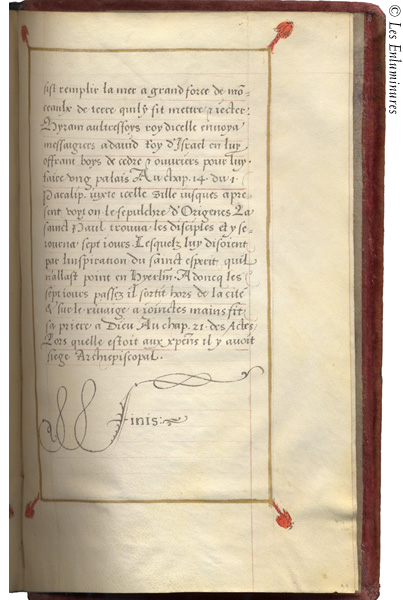 fist remplir la mer a grand force de mõ-
ceaulx de terre quil y fit mettre ⁊ iecter.
Hyram aultresfoys roy dicelle enuoya
messaigiers a dauid Roy d'Israel en luy
offrant boys de cedre ⁊ ouuriers pour luy
faire vng palais. Au chap. 14. du .1.
Paralip. icelle Ville iusques a pre-
sent voyt on le sepulchre d'Origenes La
sainct Paul trouua les disciples et y se-
iourna sept iours. Lesquelz luy disoient
par linspiration du sainct esperit quil
n'allast point en Hierlm̃. Adoncq les
sept iours passez il sortit hors de la cité
& sur le riuaige a ioinctes mains fit
sa priere a Dieu Au chap. 21. des Actes
Lors quelle estoit aux xp̃ens il y auoit
siege Archiepiscopal.
Finis:
© Les Enluminures